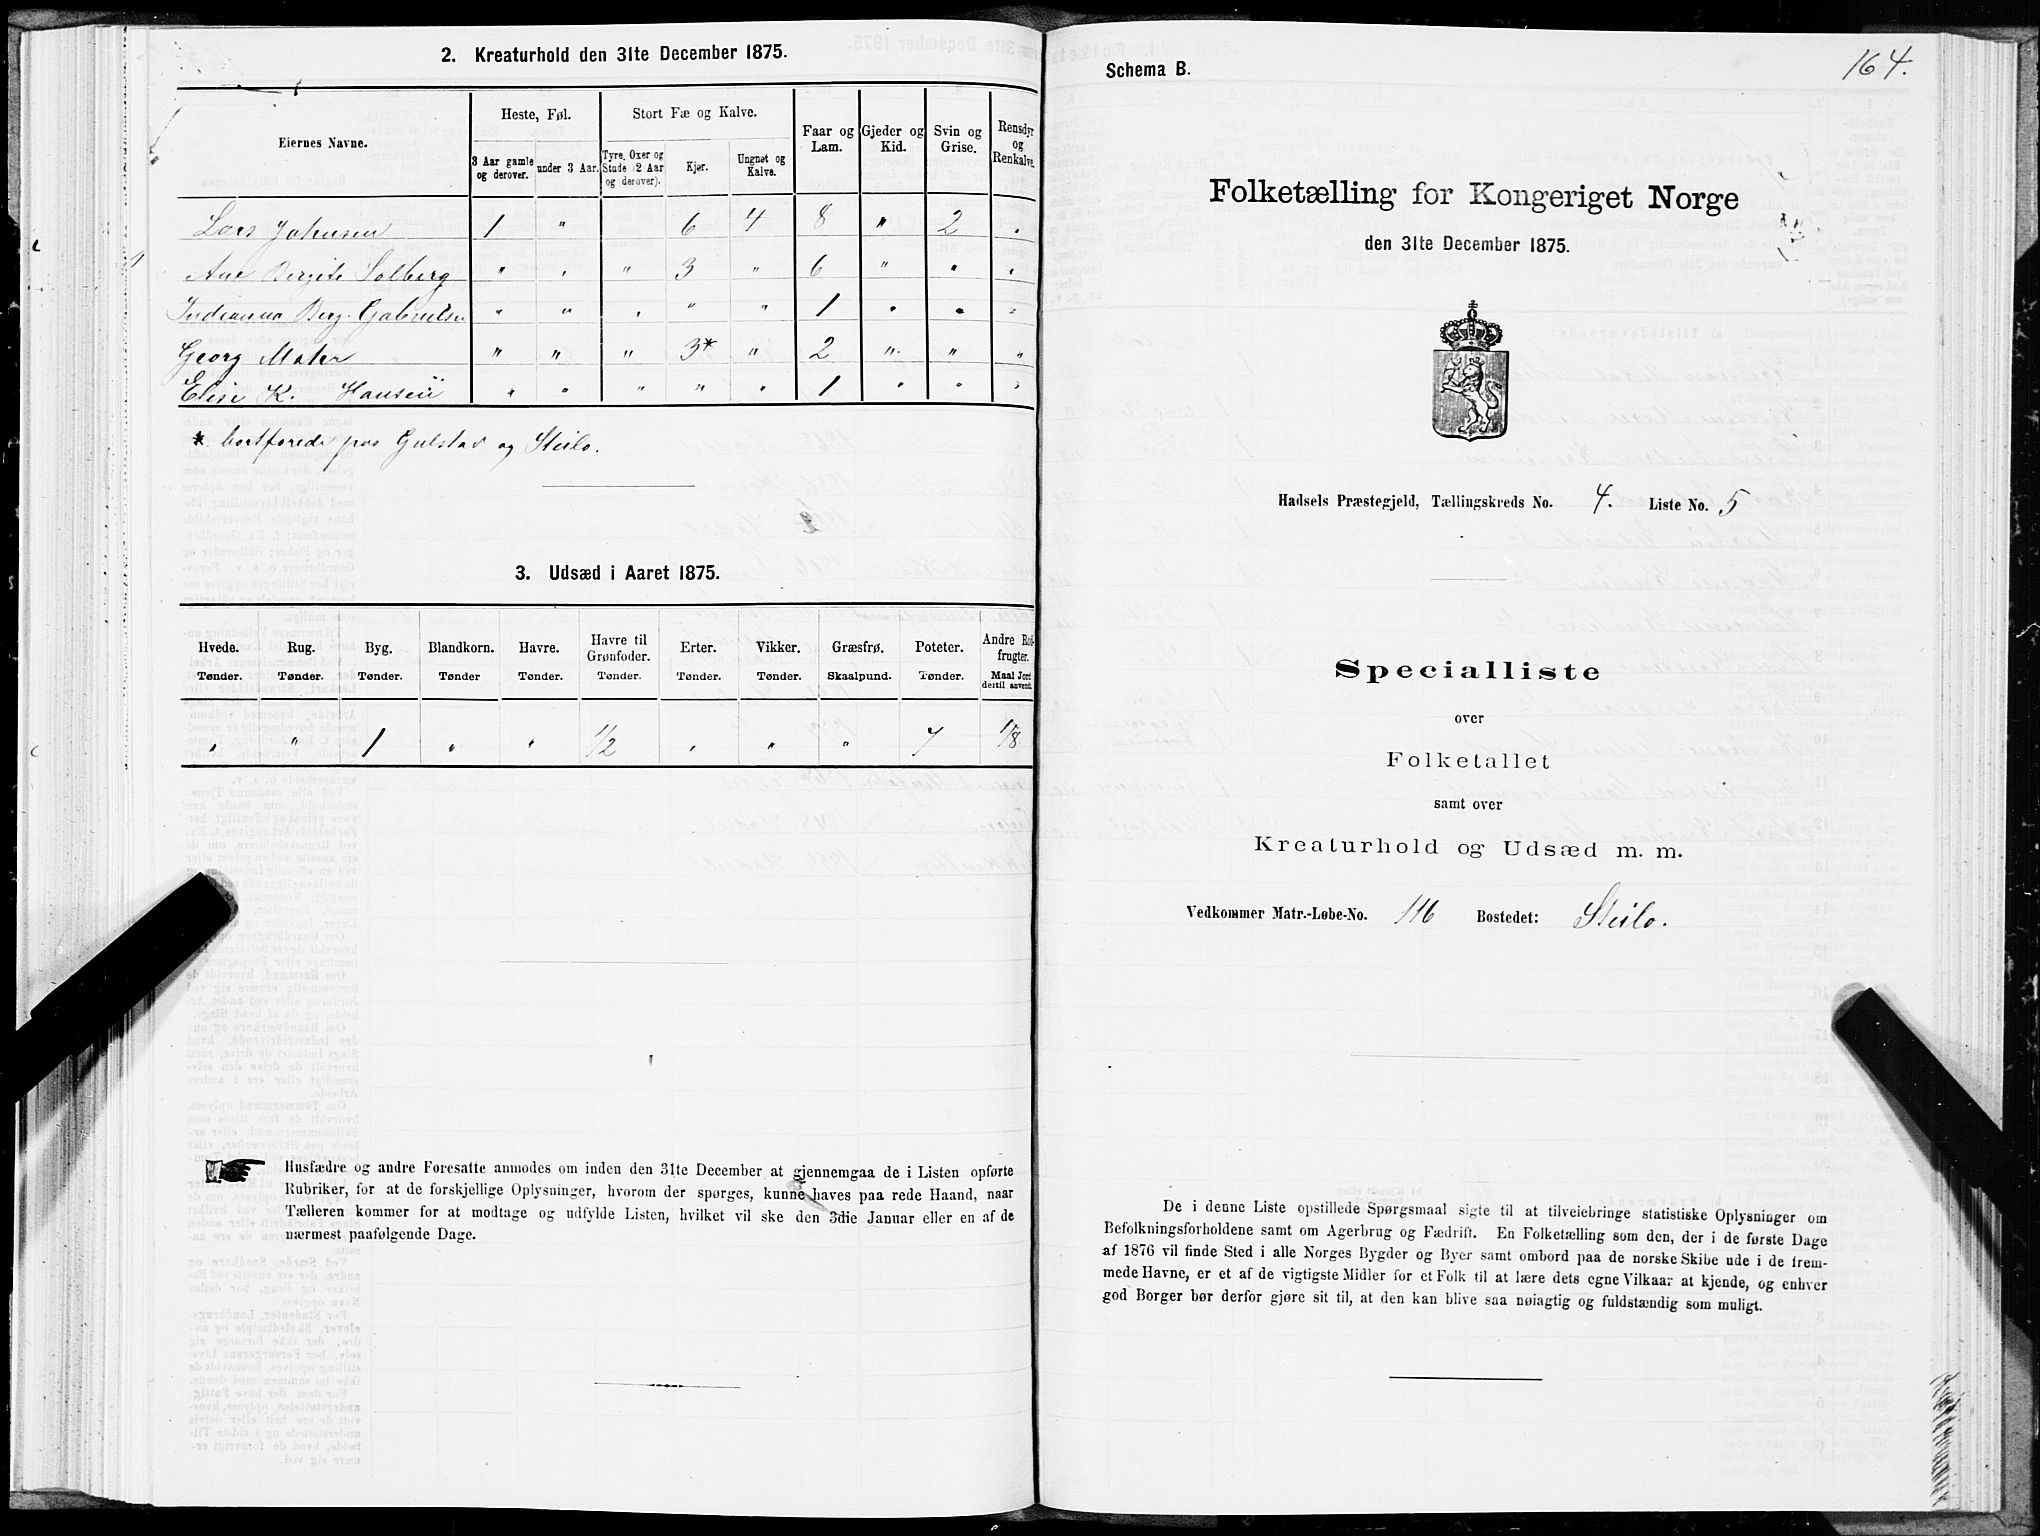 2. Kreaturhold den 31te December 1875.
Eiernes Navne.
Heste, Føl.
Stort Fæ og Kalve.
Faar og Lam.
Gjeder og Kid.
Svin og Grise.
Rensdyr og Renkalve.
3 Aar gamle og derover.
under 3 Aar.
Tyre, Oxer og Stude (2 Aar og derover).
Kjør.
Ungnøt og Kalve.
Lars Johnsen 1 " 6 4 8 " 2 "
Ane Bergite Solberg " " " 3 " 6 " " "
Indianna Berg. Gabrielsen " " " " " 1 " " "
Georg Mater " " " 3* " 2 " " "
Elise K. Hansen " " " " " 1 " " "
* bortforede paa Gulstad og Steilo.
3. Udsæd i Aaret 1875.
Hvede. Rug. Byg. Blandkorn. Havre. Havre til Grønfoder. Erter. Vikker. Græsfrø. Poteter. Andre Rodfrugter.
Tønder. Tønder. Tønder. Tønder Tønder. Tønder. Tønder. Tønder. Skaalpund. Tønder. Maal Jord dertil anvendt.
" " 1 " " 1/2 " " " 7 1/8
Husfædre og andre Foresatte anmodes om inden den 31te December at gjennemgaa de i Listen opførte
Rubriker, for at de forskjellige Oplysninger, hvorom der spørges, kunne haves paa rede Haand, naar
Tælleren kommer for at modtage og udfylde Listen, hvilket vil ske den 3die Januar eller en af de
nærmest paafølgende Dage.
164.
Schema B.
Folketælling for Kongeriget Norge
den 31te December 1875.
Hadsels Præstegjeld, Tællingskreds No. 4. Liste No. 5
Specialliste
over
Folketallet
samt over
Kreaturhold og Udsæd m. m.
Vedkommer Matr.-Løbe-No. 116 Bostedet: Steilo.
De i denne Liste opstillede Spørgsmaal sigte til at tilveiebringe statistiske Oplysninger om
Befolkningsforholdene samt om Agerbrug og Fædrift. En Folketælling som den, der i de første Dage
af 1876 vil finde Sted i alle Norges Bygder og Byer samt ombord paa de norske Skibe ude i de frem-
mede Havne, er et af de vigtigste Midler for et Folk til at lære dets egne Vilkaar at kjende, og enhver
god Borger bør derfor gjøre sit til, at den kan blive saa nøiagtig og fuldstændig som muligt.